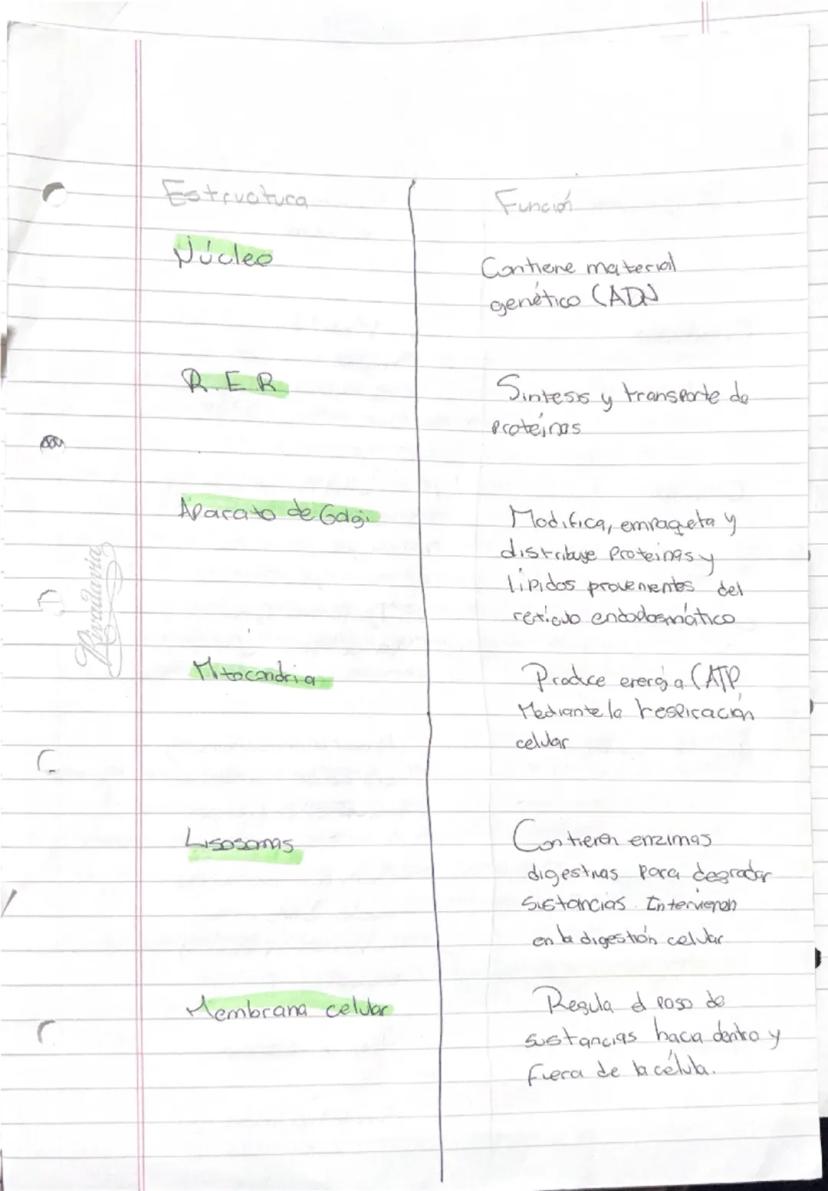 Estructura
Función
Núcleo
Contiene material
genético (ADN
R.E.R
Sintesis y transporte de
proteínas
Aparato de Golgi
Modifica, empaqueta y
distribuye proteinas y
lípidos provenientes del
retículo endoplasmático
Mitocondria
Produce energía (ATP
Mediante la respiración
celular
Lisosomas
Contienen enzimas
digestivas para degradar
sustancias. Intervienen
en la digestión celular
Membrana celular
Regula el paso de
sustancias hacia dentro y
fuera de la célula.
Rivadavia